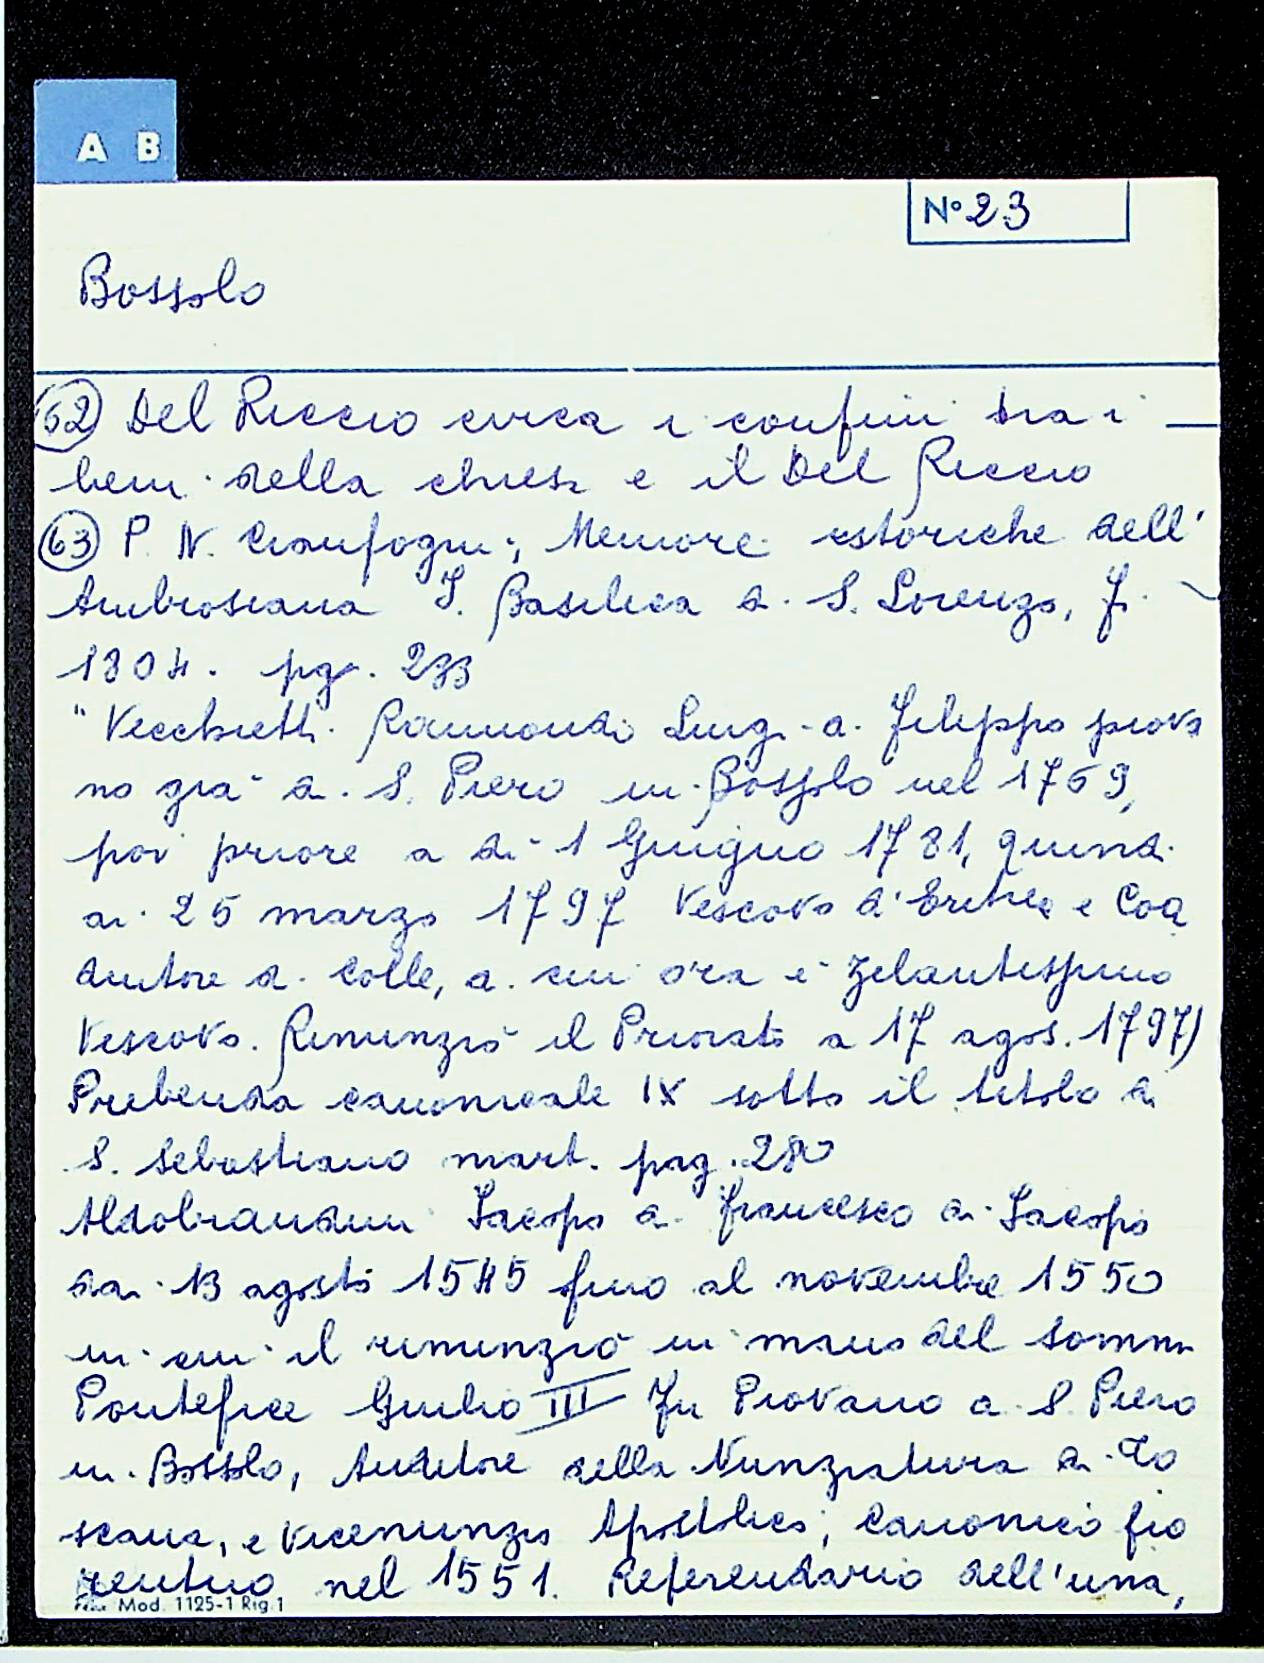 A B
N° 23
Bossolo
62 Del Riccio circa i confini tra i
beni della chiesa e il Del Riccio
63 P. N. Cianfogni, Memorie istoriche dell'
Ambrosiana I. Basilica di S. Lorenzo, F.
1804. pg. 233
"Vecchietti Raimondo Luigi di Filippo piova
no già di S. Piero in Bossolo nel 1769,
poi priore a dì 1 Giugno 1781, quindi
ai 25 marzo 1797 Vescovo d'Eritrea e Coa
diutore di Colle, di cui ora è zelantissimo
Vescovo. Rinunziò il Priorato a 17 agos. 1797)
Prebenda canonicale IX sotto il titolo di
S. Sebastiano mart. pag. 280
Aldobrandini Iacopo di Francesco di Iacopo
dai 13 agosto 1545 fino al novembre 1550
in cui il rinunziò in mano del Sommo
Pontefice Giulio III Fu Piovano a S. Piero
in Bossolo, Auditore della Nunziatura di To
scana, e Vicenunzio Apostolico, Canonico fio
rentino nel 1551. Referendario dell'una,
Mod. 1125-1 Rig.1